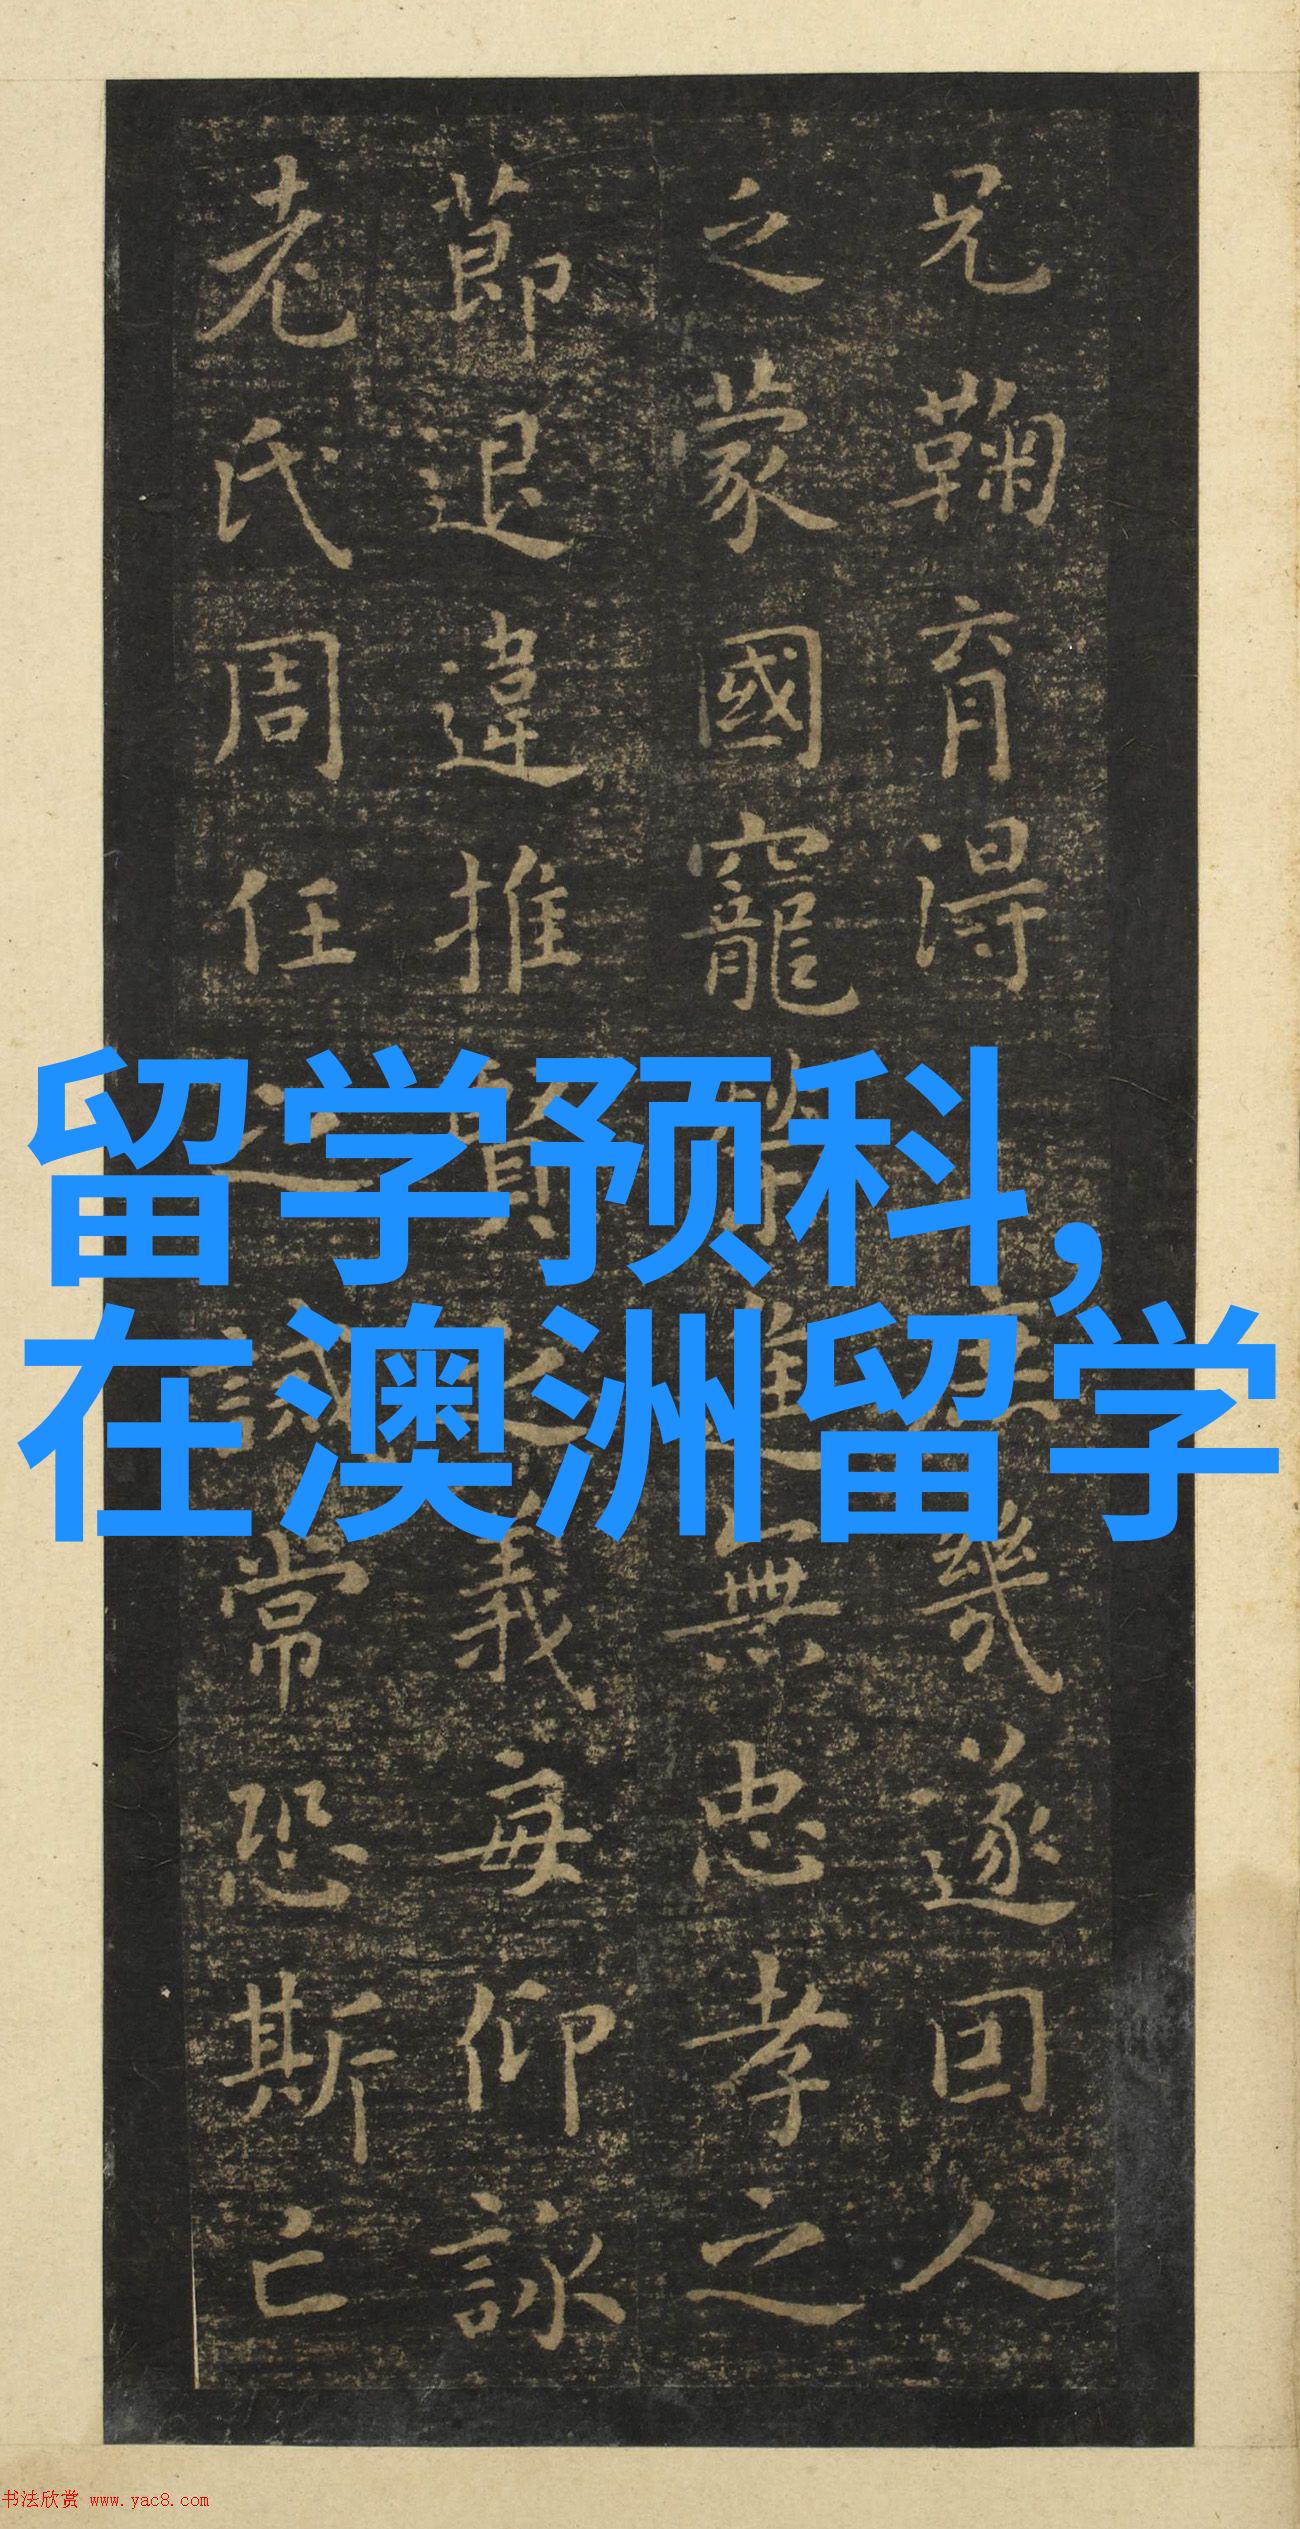 兄鞠育得
之蒙國寵
無忠孝之
幾遂回人
莭退違推賢之義每仰詠
老氏周任之誡常恐斯亡
留学预科,
在澳洲留学
书法欣赏 www.yac8.com